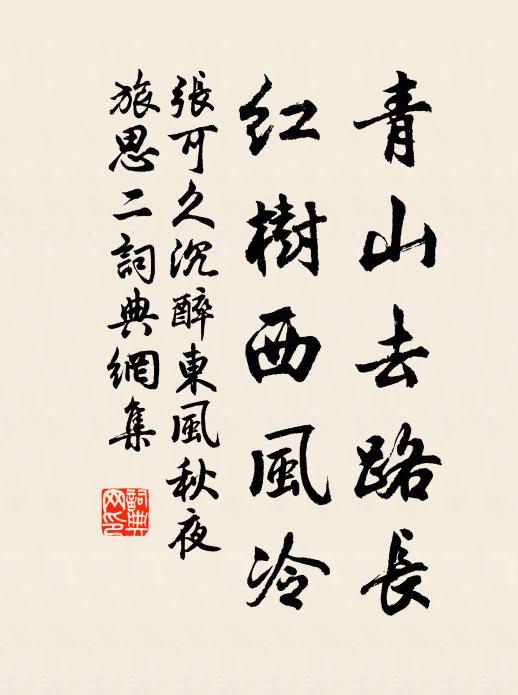 青山去路長
紅樹西風冷
張可久沉醉東風秋夜
旅思二詞典網集
詞典網印